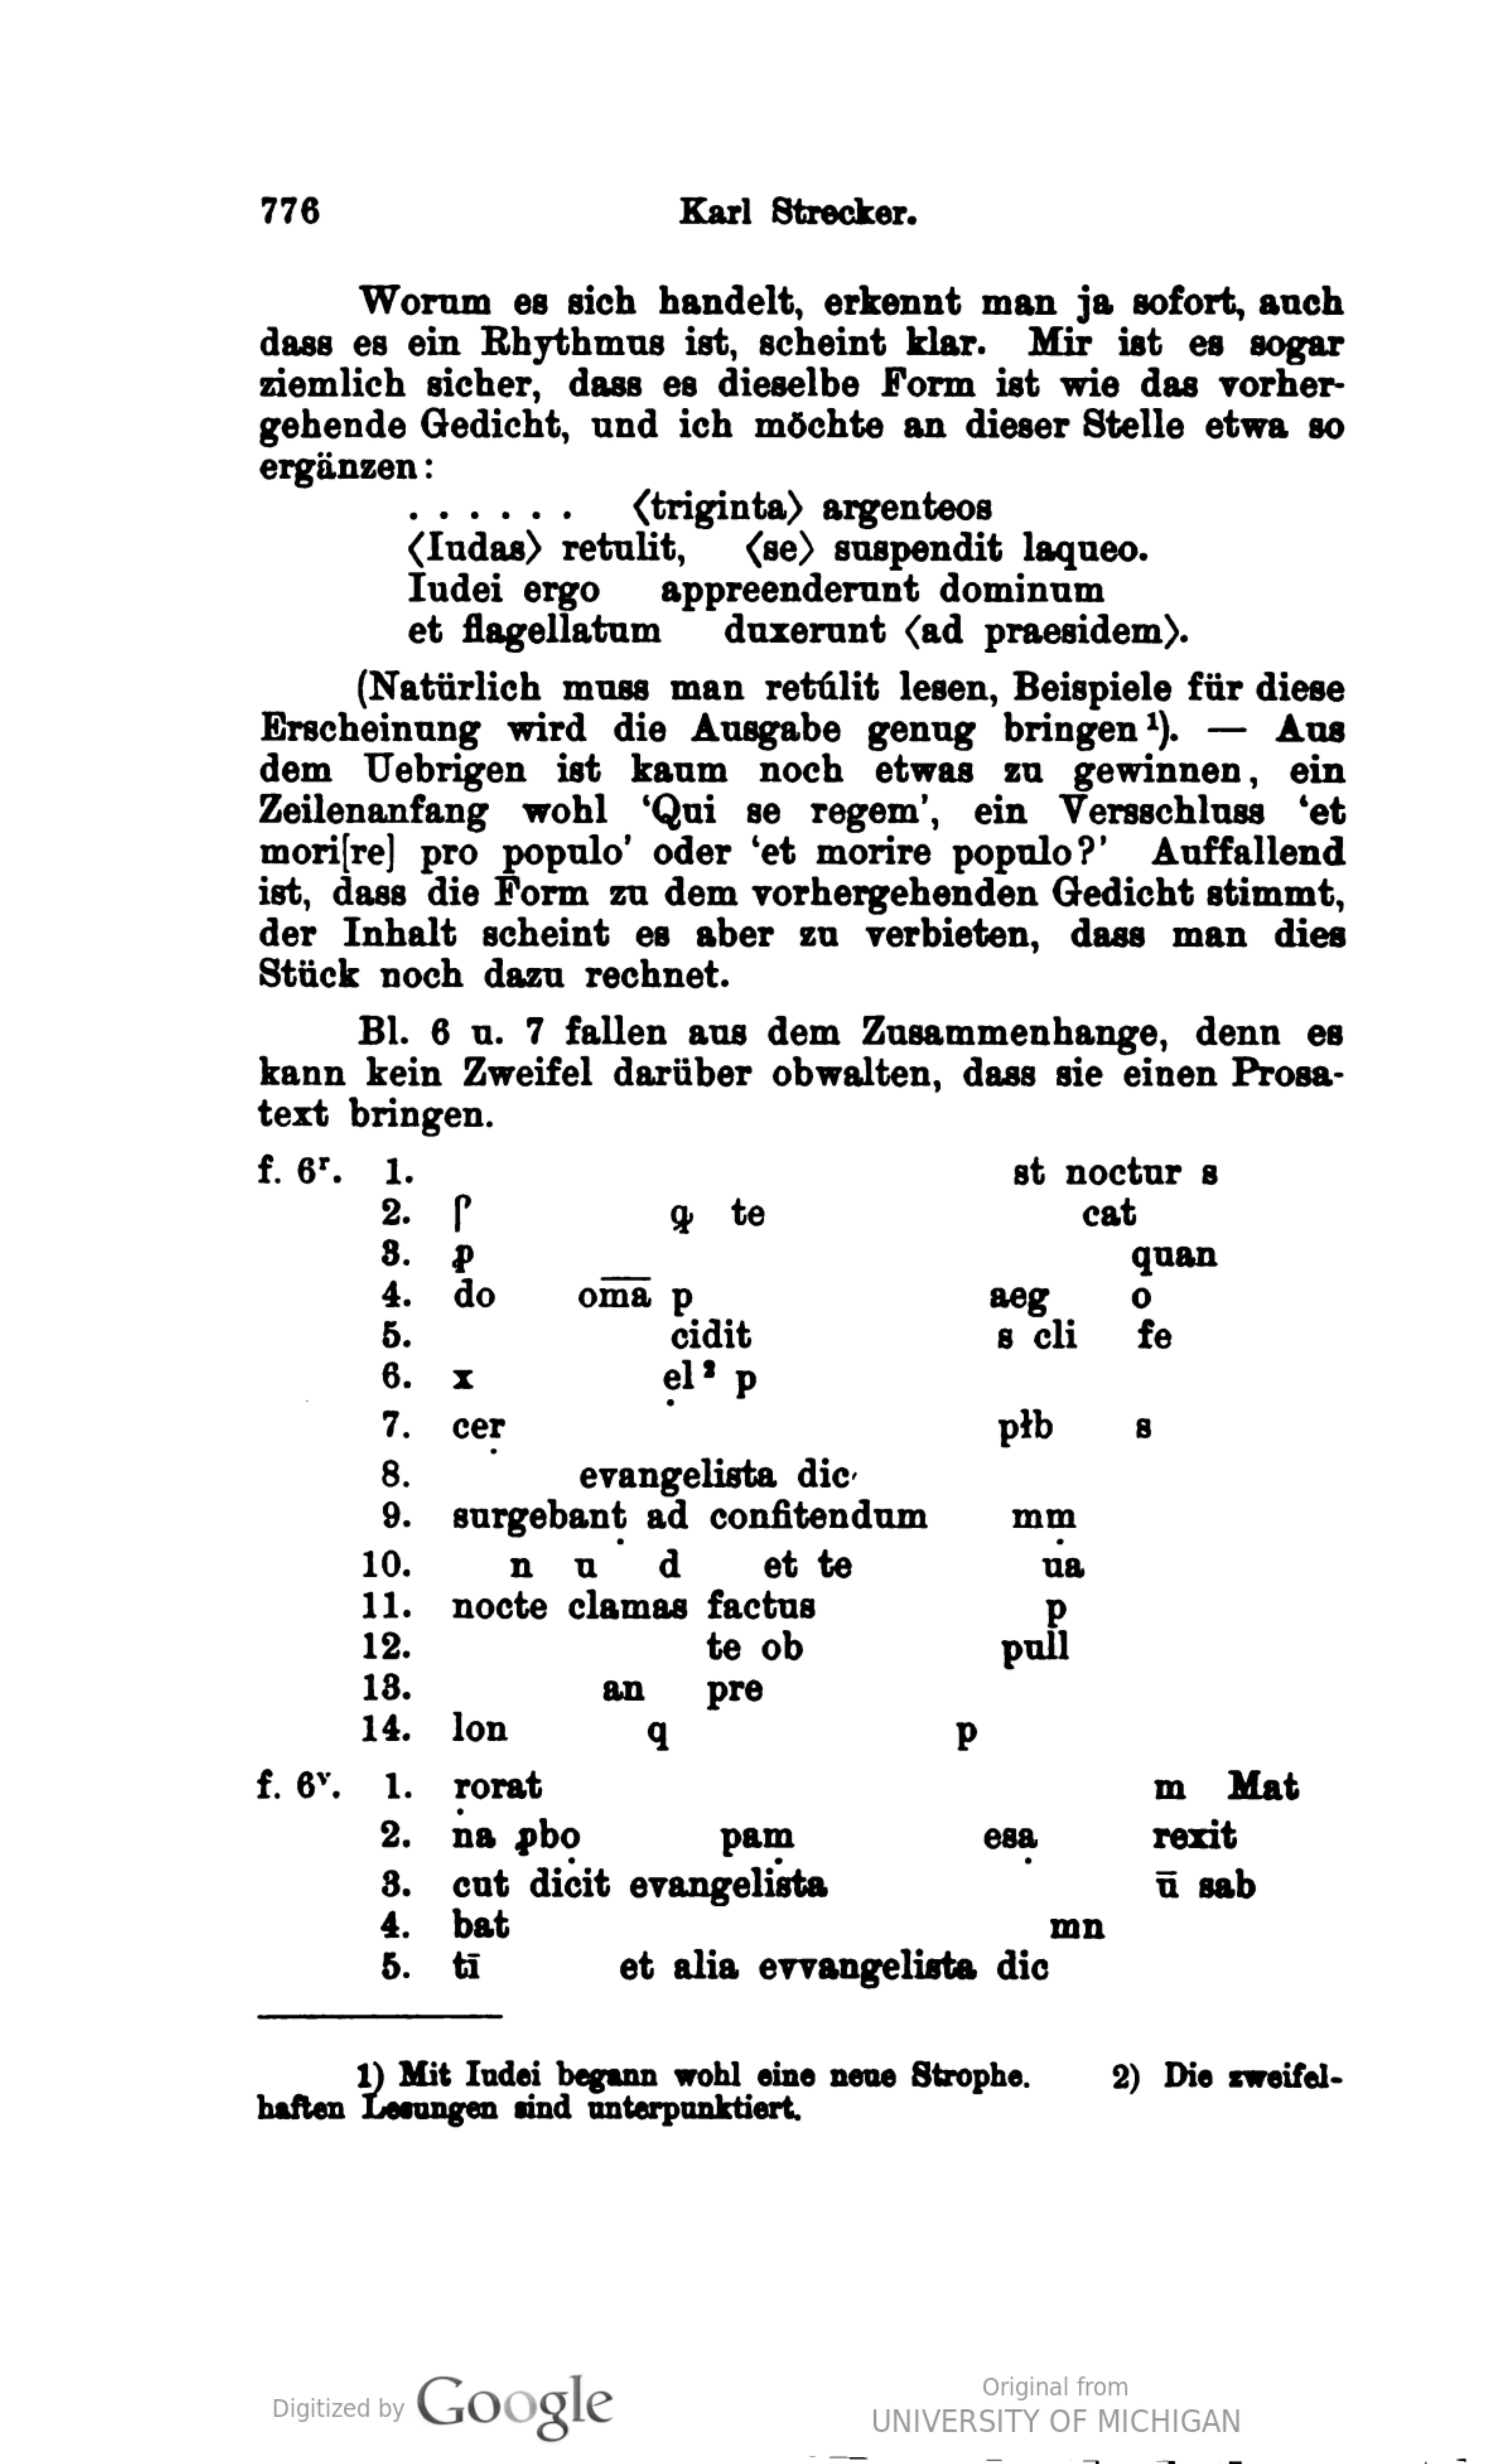 776 Karl Strecker.
Worum es sich handelt, erkennt man ja sofort, auch
dass es ein Rhythmus ist, scheint klar. Mir ist es sogar
ziemlich sicher, dass es dieselbe Form ist wie das vorher-
gehende Gedicht, und ich möchte an dieser Stelle etwa so
ergänzen:
. . . . . . ⟨triginta⟩ argenteos
⟨Iudas⟩ retulit, ⟨se⟩ suspendit laqueo.
Iudei ergo appreenderunt dominum
et flagellatum duxerunt ⟨ad praesidem⟩.
(Natürlich muss man retúlit lesen, Beispiele für diese
Erscheinung wird die Ausgabe genug bringen ¹). — Aus
dem Uebrigen ist kaum noch etwas zu gewinnen, ein
Zeilenanfang wohl ‘Qui se regem’, ein Versschluss ‘et
mori[re] pro populo’ oder ‘et morire populo?’ Auffallend
ist, dass die Form zu dem vorhergehenden Gedicht stimmt,
der Inhalt scheint es aber zu verbieten, dass man dies
Stück noch dazu rechnet.
Bl. 6 u. 7 fallen aus dem Zusammenhange, denn es
kann kein Zweifel darüber obwalten, dass sie einen Prosa-
text bringen.
f. 6ʳ. 1. st noctur s
2. q te cat
3. ꝓ quan
4. do om̅a̅ p aeg o
5. cidit s cli fe
6. x ẹl ² p
7. ceṛ płb s
8. evangelista dic′
9. surgebanṭ ad confitendum mṃ
10. n u d et te ua
11. nocte clamas factus p
12. te ob pull
13. an pre
14. lon q p
f. 6ᵛ. 1. ṛorat m Mat
2. na ꝓbọ paṃ esạ rexit
3. cut dicit evangelista ū sab
4. bat mn
5. tī et alia evvangelista dic
1) Mit Iudei begann wohl eine neue Strophe. 2) Die zweifel-
haften Lesungen sind unterpunktiert.
Digitized by Google
Original from
UNIVERSITY OF MICHIGAN